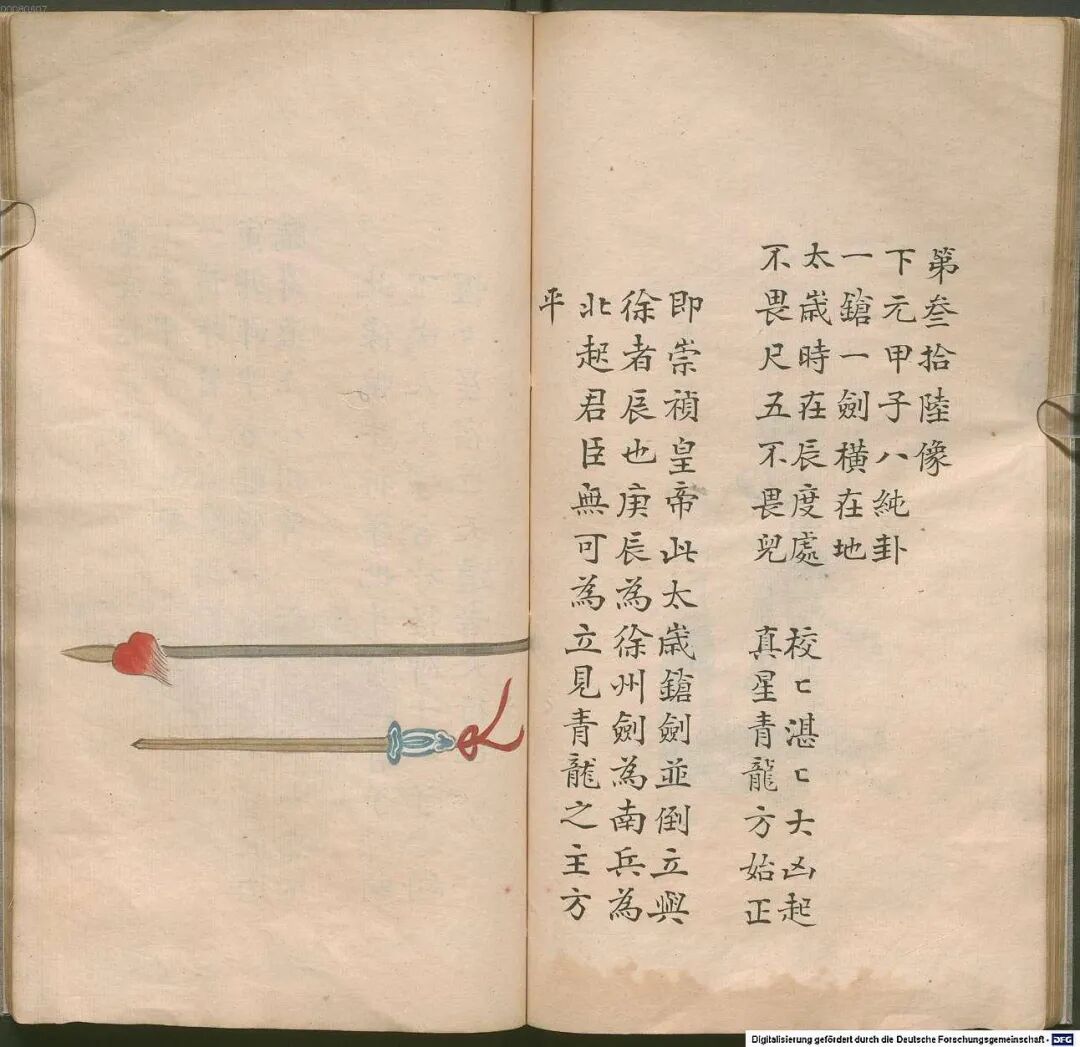 第叁拾陸像
下元甲子八純卦
一鎗一劍橫在地
太歲時在辰度處 校ㄷ湛ㄷ大凶起
不畏尺五不畏兒 真星青龍方始正
即崇禎皇帝此太歲鎗劍並倒立興
徐者辰也庚辰為徐州劍為南兵為
北起君臣無可為立見青龍之主方
平
Digitalisierung gefördert durch die Deutsche Forschungsgemeinschaft - DFG